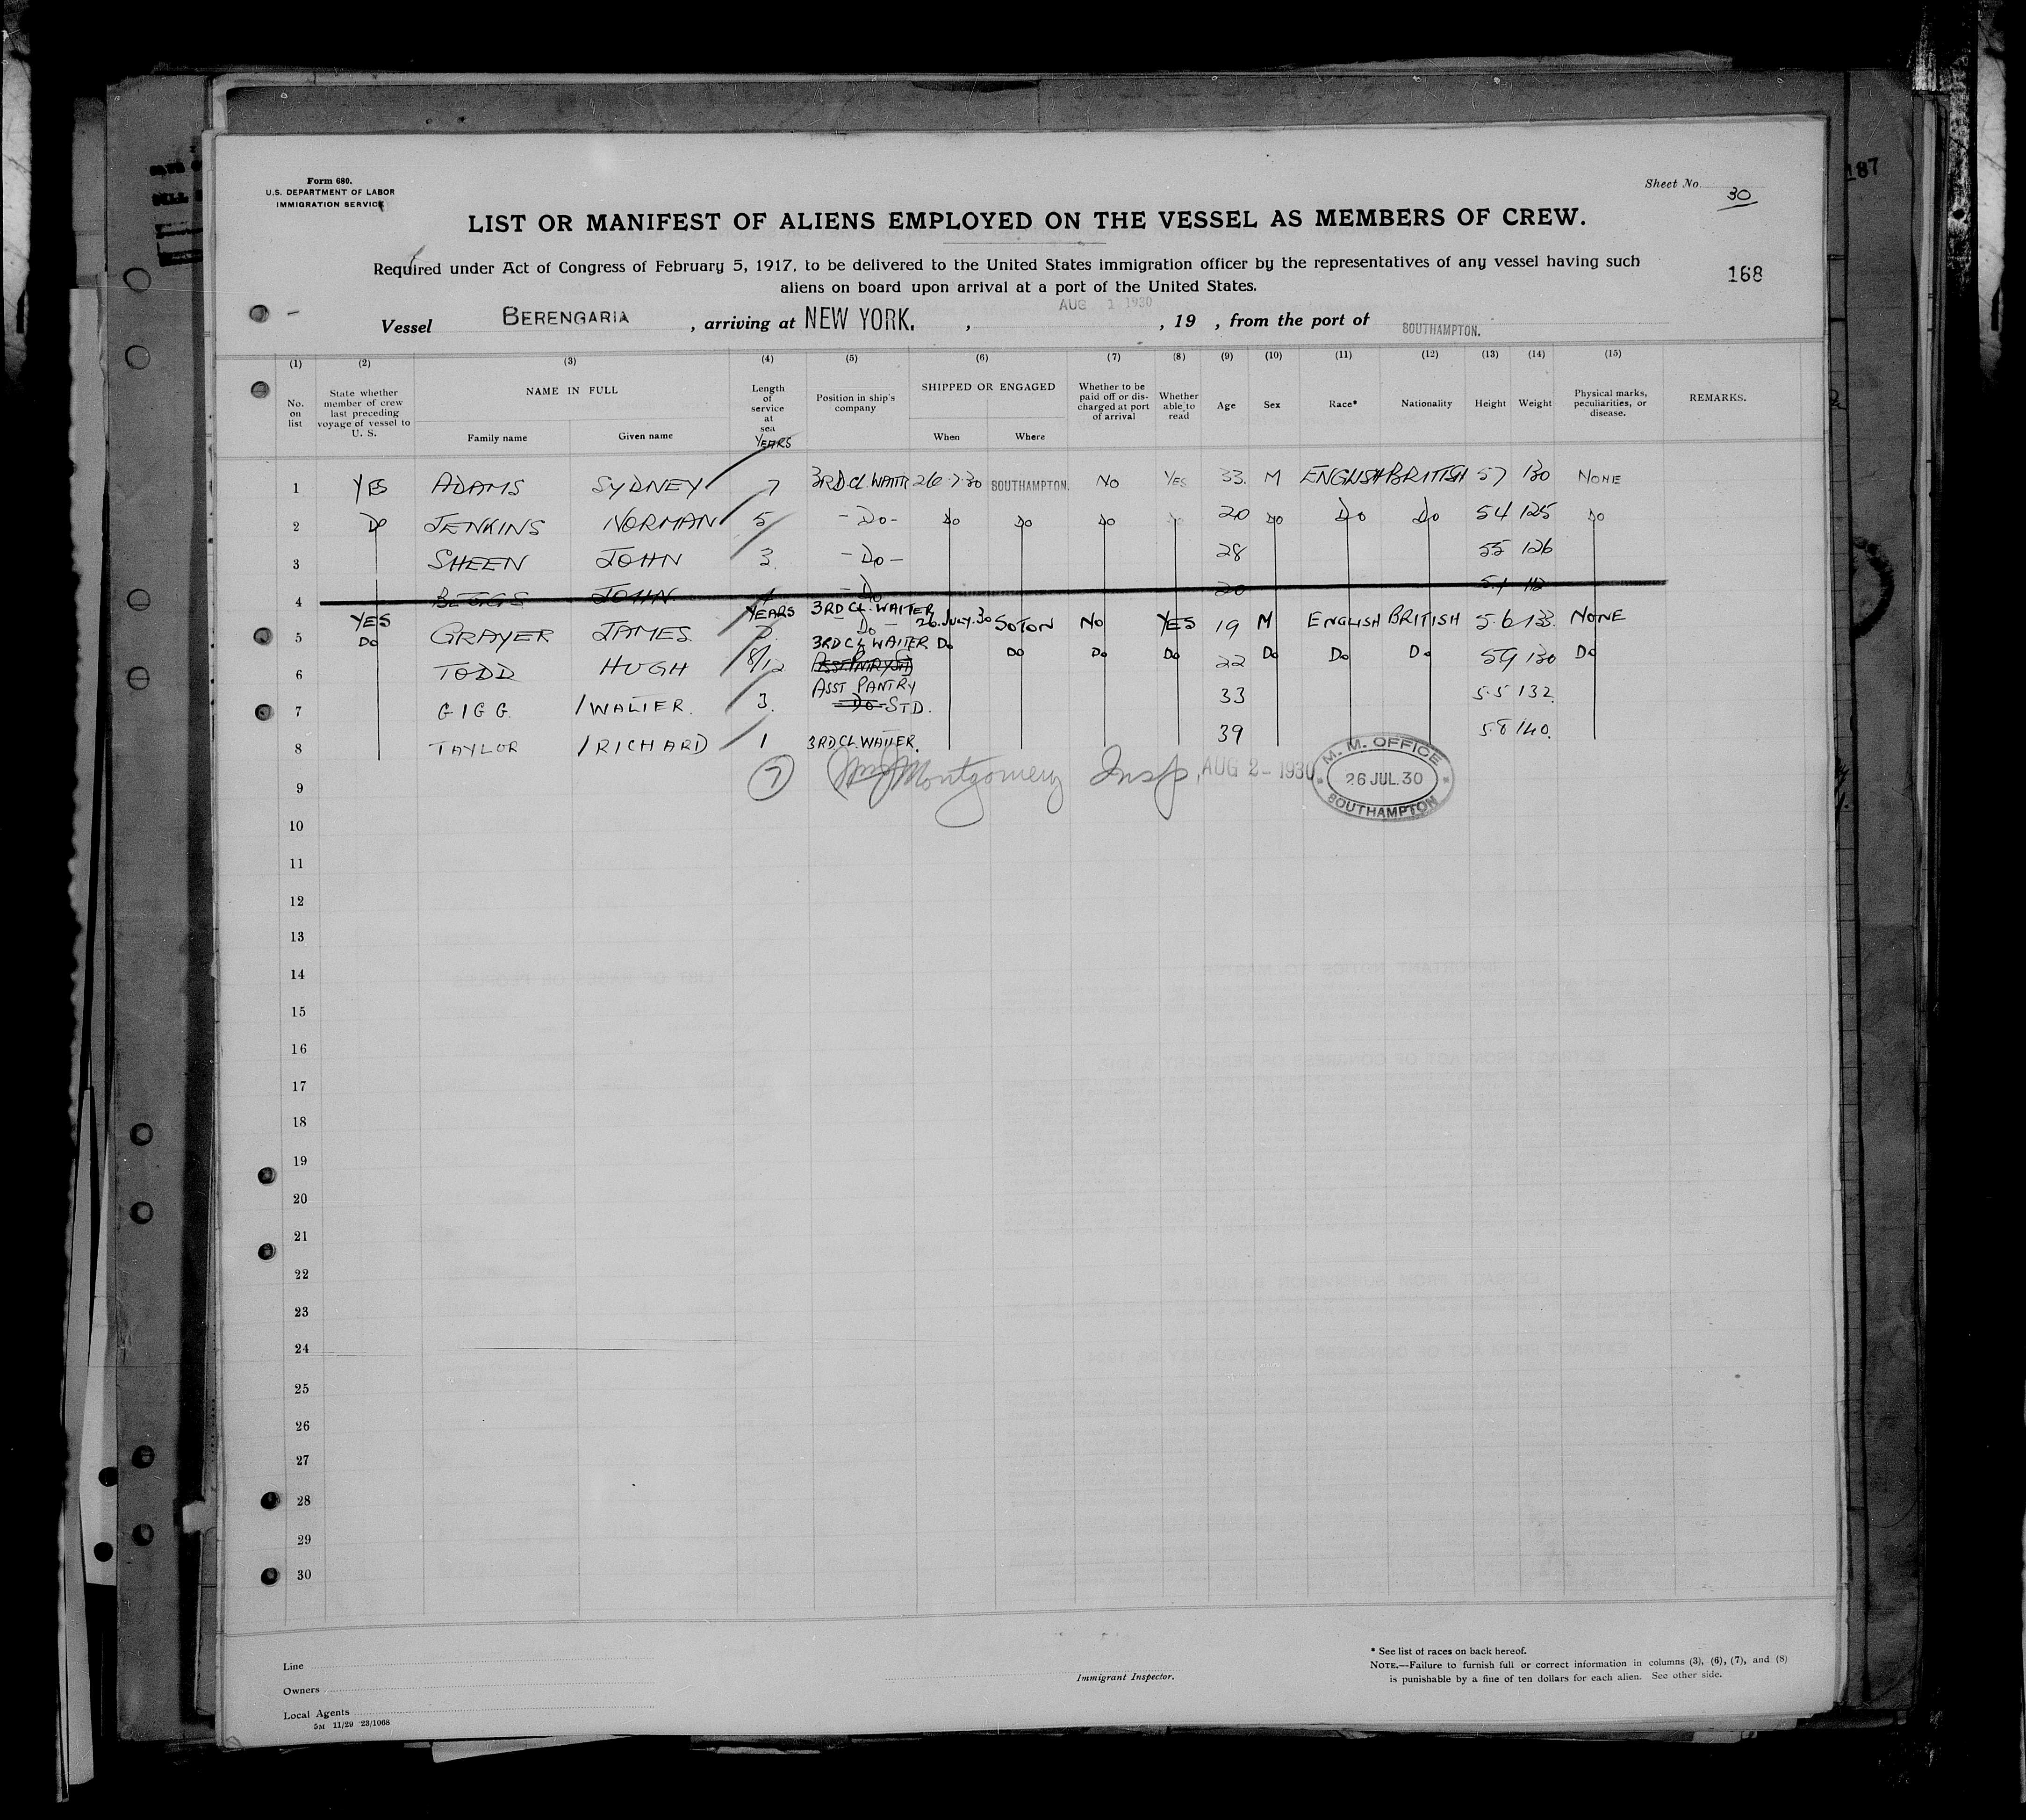 187
Form 680.
U.S. DEPARTMENT OF LABOR
IMMIGRATION SERVICE
Sheet No. 30
LIST OR MANIFEST OF ALIENS EMPLOYED ON THE VESSEL AS MEMBERS OF CREW.
Required under Act of Congress of February 5, 1917, to be delivered to the United States immigration officer by the representatives of any vessel having such
aliens on board upon arrival at a port of the United States.
168
Vessel BERENGARIA , arriving at NEW YORK. , AUG 1 1930 , 19 , from the port of SOUTHAMPTON.
(1) (2) (3) (4) (5) (6) (7) (8) (9) (10) (11) (12) (13) (14) (15)
No. on list
State whether member of crew last preceding voyage of vessel to U. S.
NAME IN FULL
Family name Given name
Length of service at sea
YEARS
Position in ship's company
SHIPPED OR ENGAGED
When Where
Whether to be paid off or discharged at port of arrival
Whether able to read
Age
Sex
Race*
Nationality
Height
Weight
Physical marks, peculiarities, or disease.
REMARKS.
1 YES ADAMS SYDNEY 7 3RD CL WAITR 26.7.30 SOUTHAMPTON. NO YES 33. M ENGLISH BRITISH 57 130 NONE
2 Do JENKINS NORMAN 5 -Do- Do Do Do Do 20 Do Do Do 54 125 Do
3 SHEEN JOHN 3. -Do- 28 55 126
4 BEGGS JOHN -Do 20 51 112
YEARS 3RD CL. WAITER
5 YES GRAYER JAMES. Do 26.JULY.30 SOTON NO YES 19 M ENGLISH BRITISH 5.6 133. NONE
Do 3RD CL WAITER Do Do Do Do Do Do Do Do
6 TODD HUGH 8/12 22 59 130
ASST PANTRY
7 GIGG. /WALTER. 3. Do STD. 33 5.5 132.
8 TAYLOR /RICHARD 1 3RD CL. WAITER. 39 5.8 140.
9 7 Montgomery Insp. AUG 2- 1930
M. M. OFFICE
26 JUL.30
SOUTHAMPTON
10
11
12
13
14
15
16
17
18
19
20
21
22
23
24
25
26
27
28
29
30
Line
Owners
Local Agents
5M 11/29 23/1068
Immigrant Inspector.
* See list of races on back hereof.
NOTE.—Failure to furnish full or correct information in columns (3), (6), (7), and (8)
is punishable by a fine of ten dollars for each alien. See other side.